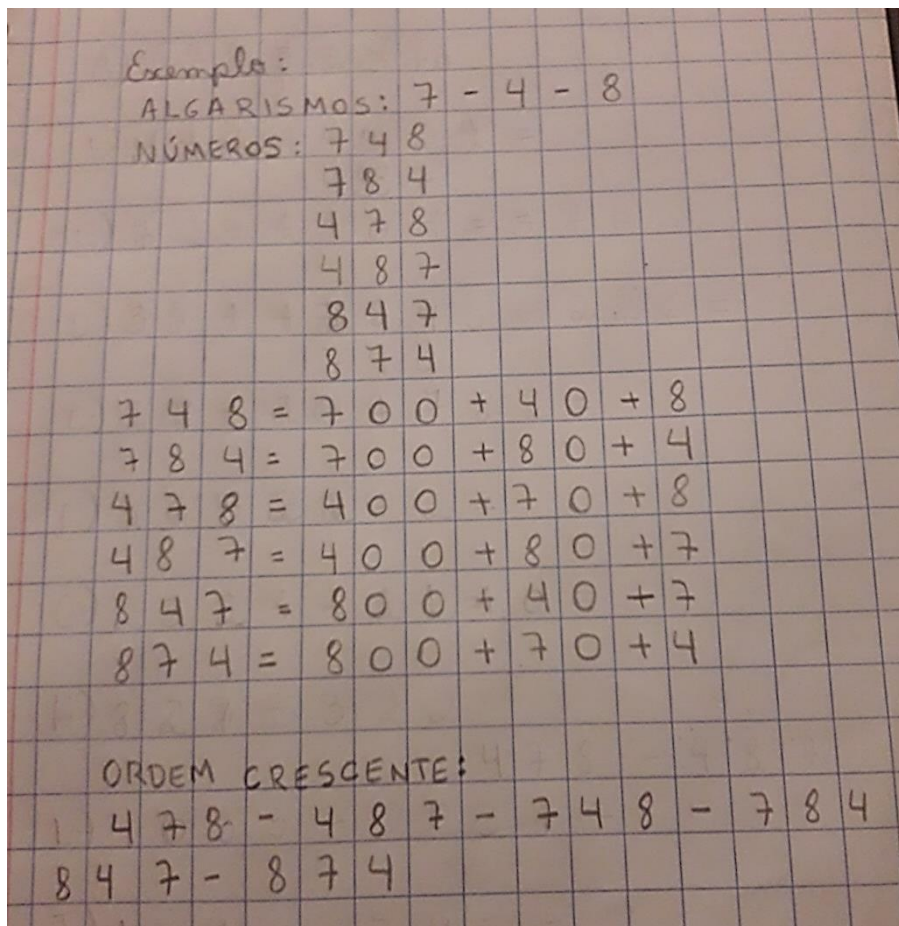 Exemplo:
ALGARISMOS: 7 - 4 - 8
NÚMEROS: 748
784
478
487
847
874
748 = 700 + 40 + 8
784 = 700 + 80 + 4
478 = 400 + 70 + 8
487 = 400 + 80 + 7
847 = 800 + 40 + 7
874 = 800 + 70 + 4
ORDEM CRESCENTE:
478 - 487 - 748 - 784
847 - 874